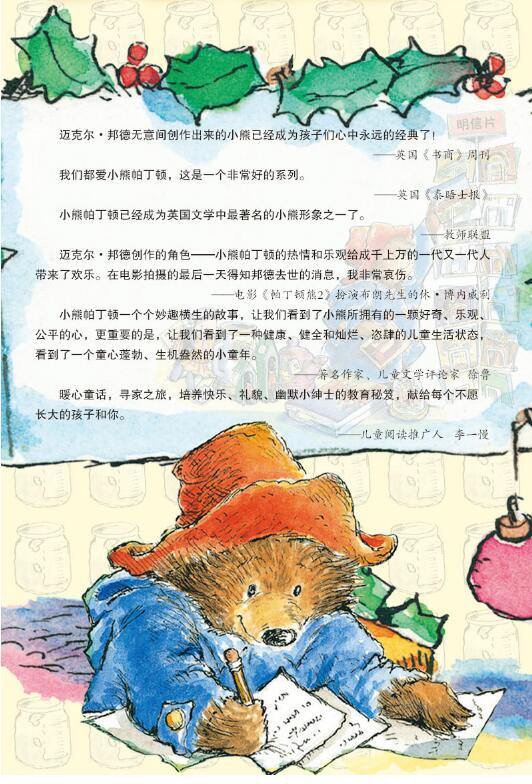 明信片
迈克尔·邦德无意间创作出来的小熊已经成为孩子们心中永远的经典了！
——英国《书商》周刊
我们都爱小熊帕丁顿，这是一个非常好的系列。
——英国《泰晤士报》
小熊帕丁顿已经成为英国文学中最著名的小熊形象之一了。
——教师联盟
迈克尔·邦德创作的角色——小熊帕丁顿的热情和乐观给成千上万的一代又一代人
带来了欢乐。在电影拍摄的最后一天得知邦德去世的消息，我非常哀伤。
——电影《帕丁顿熊2》扮演布朗先生的休·博内威利
小熊帕丁顿一个个妙趣横生的故事，让我们看到了小熊所拥有的一颗好奇、乐观、
公平的心，更重要的是，让我们看到了一种健康、健全和灿烂、恣肆的儿童生活状态，
看到了一个童心蓬勃、生机盎然的小童年。
——著名作家、儿童文学评论家 徐鲁
暖心童话，寻家之旅，培养快乐、礼貌、幽默小绅士的教育秘笈，献给每个不愿
长大的孩子和你。
——儿童阅读推广人 李一慢